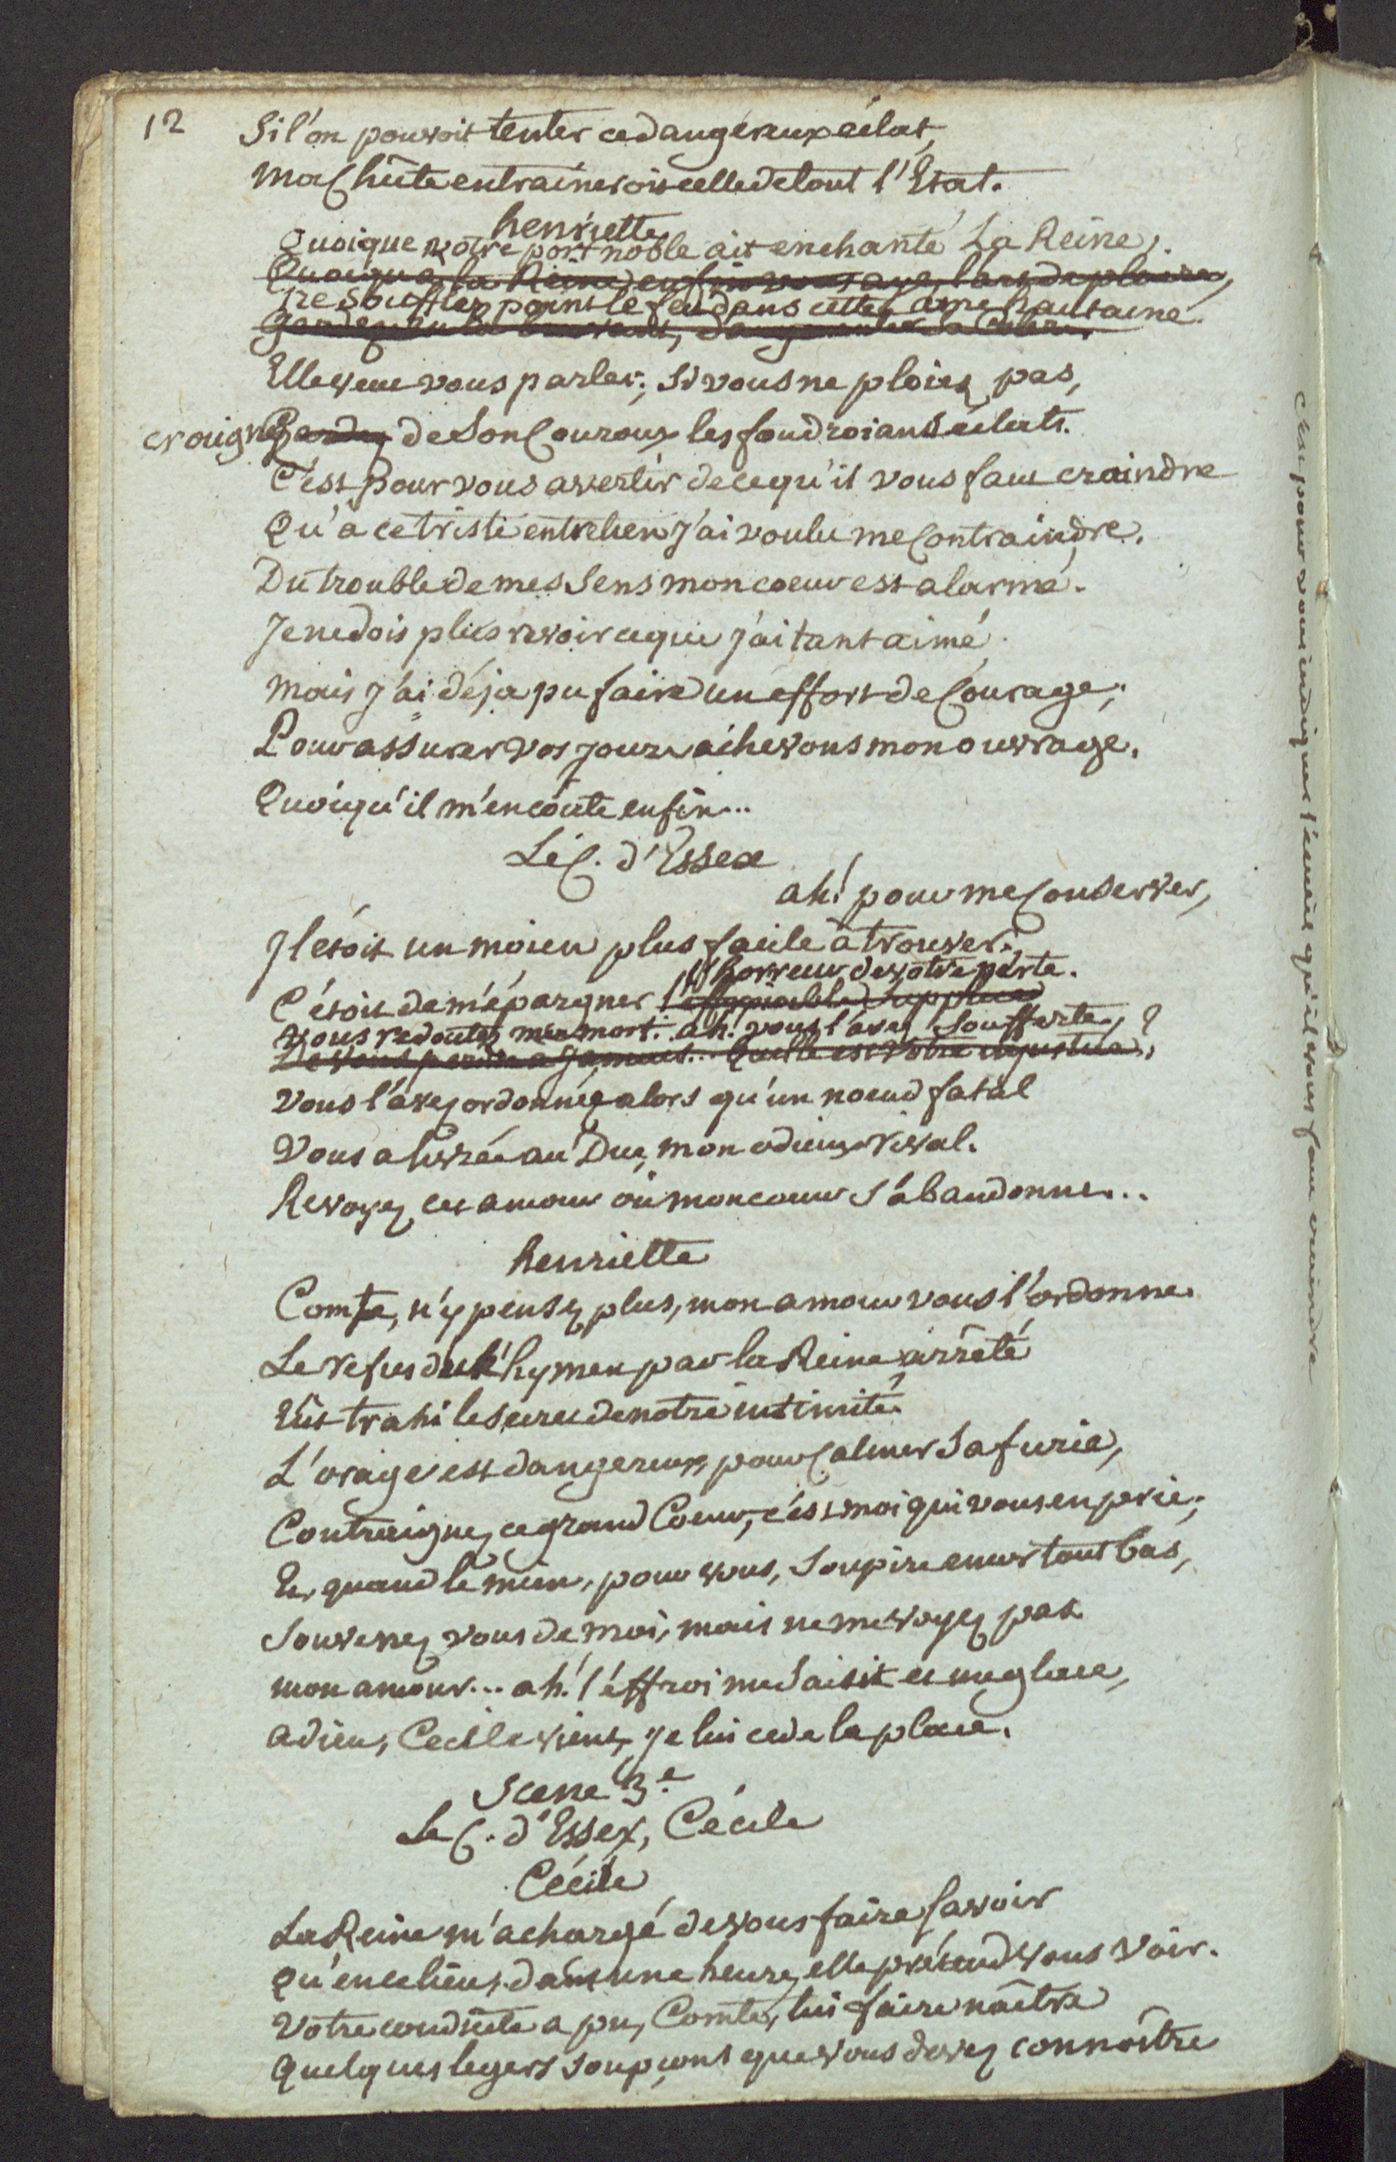 12
Si l'on pouvoit tenter ce dangereux éclat,
Ma Chûte entraineroit celle de tout l'Etat.
henriette
Quoique votre port noble ait enchanté La Reine,
Quoiqu'a la Reine enfin vous ayez l'art de plaire,
ne soufflez point le feu dans cette ame hautaine.
gardez
Elle veut vous parler; Si vous ne ploiez pas,
craignez Gardez de Son Couroux les foudroians éclats.
C'est pour vous avertir de ce qu'il vous faut craindre
Qu'a ce triste entretien J'ai voulu me Contraindre.
Du trouble de mes Sens mon coeur est alarmé.
Je ne dois plus revoir ce que J'ai tant aimé
Mais J'ai déja pu faire un effort de Courage;
Pour assurer vos jours achevons mon ouvrage.
Quoiqu'il m'en coute enfin...
Le C. d'Essex
ah! pour me Conserver,
Il étoit un moien plus facile à trouver.
l'horreur de votre perte.
C'étoit de m'épargner l'effroiable Supplice
vous redoutez ma mort. ah! vous l'avez Soufferte,?
De vous perdre a jamais... Quelle est votre injustice,
Vous l'avez ordonnée alors qu'un noeud fatal
Vous a livrée au Duc, mon odieux rival.
Revoyez cet amour où mon coeur S'abandonne...
henriette
Comte, n'y pensez plus, mon amour vous l'ordonne.
Le refus de l'hymen par la Reine arrêté
Eut trahi le secret de notre intimité.
L'orage est dangereux, pour Calmer Sa furie,
Contraignez ce grand Coeur, c'est moi qui vous en prie;
Et, quand le mien, pour vous, Soupire encor tout bas,
Souvenez vous de moi, mais ne me voyez pas
mon amour... ah! l'éffroi me Saisit et me glace,
adieu, Cecile vient, je lui cede la place.
Scene 3.e
Le C. d'Essex, Cécile
Cécile
La Reine m'a chargé de vous faire savoir
Qu'en ce lieu, dans une heure, elle prétend vous voir.
Votre conduite a pu, Comte, lui faire naître
Quelques legers Soupçons que vous devez connoître
C'est pour vous indiquer l'écueil qu'il vous faut craindre